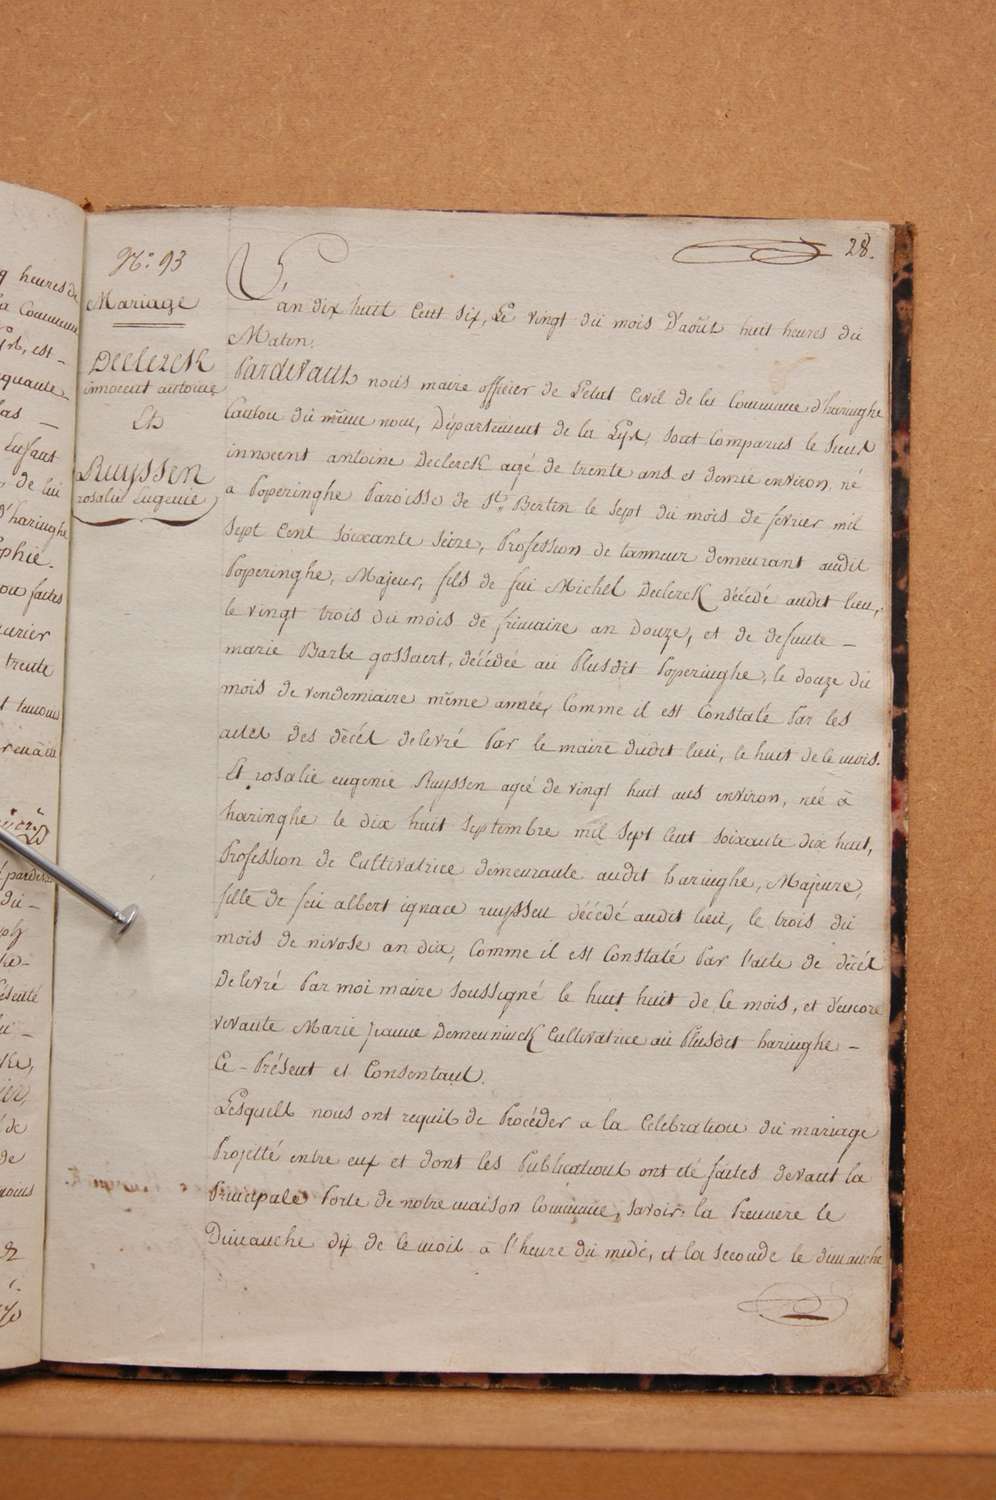 28.
N.° 93
Mariage
Declerck
innocent antoine
Et
Ruyssen
rosalie Eugenie
L'an dix huit Cent six, Le vingt du mois d'août huit heures du
Matin.
Pardevant nous maire officier de l'etat Civil de la Commune d'haringhe
Canton du même nom, Département de la Lys, sont comparus le sieur
innocent antoine Declerck agé de trente ans et demie environ, né
a Poperinghe Paroisse de St. Bertin le sept du mois de fevrier mil
sept Cent soixante seize, Profession de tanneur demeurant audit
Poperinghe, Majeur, fils de feu Michel Declerck décédé audit lieu,
le vingt trois du mois de frimaire an Douze, et de defunte –
marie Barbe gossaert, décédée au Plusdit Poperinghe, le douze du
mois de vendemiaire même année, Comme il est Constaté Par les
actes des décès delivré Par le maire dudit lieu, le huit de ce mois.
Et rosalie eugenie Ruyssen agée de vingt huit ans environ, née à
haringhe le dix huit septembre mil sept Cent soixante dix huit,
Profession de Cultivatrice demeurante audit haringhe, Majeure,
fille de feu albert ignace ruyssen décédé audit lieu, le trois du
mois de nivose an dix, Comme il est Constaté Par l'acte de décès
Delivré Par moi maire soussigné le huit huit de ce mois, et d'encore
vivante Marie jeanne Demeuninck Cultivatrice au Plusdit haringhe –
Ce – Présent et Consentant.
Lesquels nous ont requis de Procéder a la Celebration du mariage
Projetté entre eux et dont les Publications ont été faites devant la
Principale Porte de notre maison Commune, savoir: la Premiere le
Dimanche dix de ce mois à l'heure du midi, et la seconde le dimanche